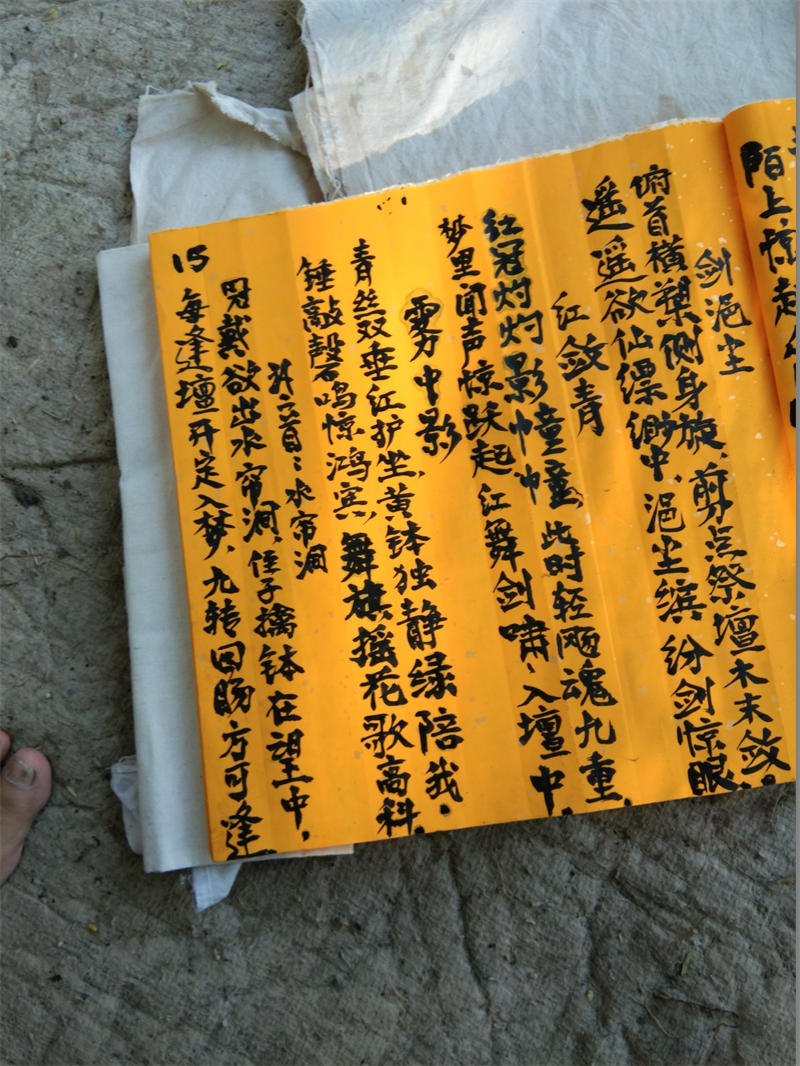 陌上惊起
剑浥尘
俯首横槊侧身旋，剪点祭壇木末敛，
遥遥欲仙缥缈中，浥尘缤纷剑惊眼。
红敛青
红冠灼灼影幢幢，此时轻飏魂九重，
梦里闻声惊跃起，红舞剑啸入壇中。
雾中影
青丝双垂红护坐，黄钵独静绿陪我。
锤敲磬鸣惊鸿宾，舞旗摇花歌高科。
外六首：水帘洞
冠戴欲出水帘洞，侄子擒钵在望中，
每逢壇开定入梦，九转回肠方可逢
15